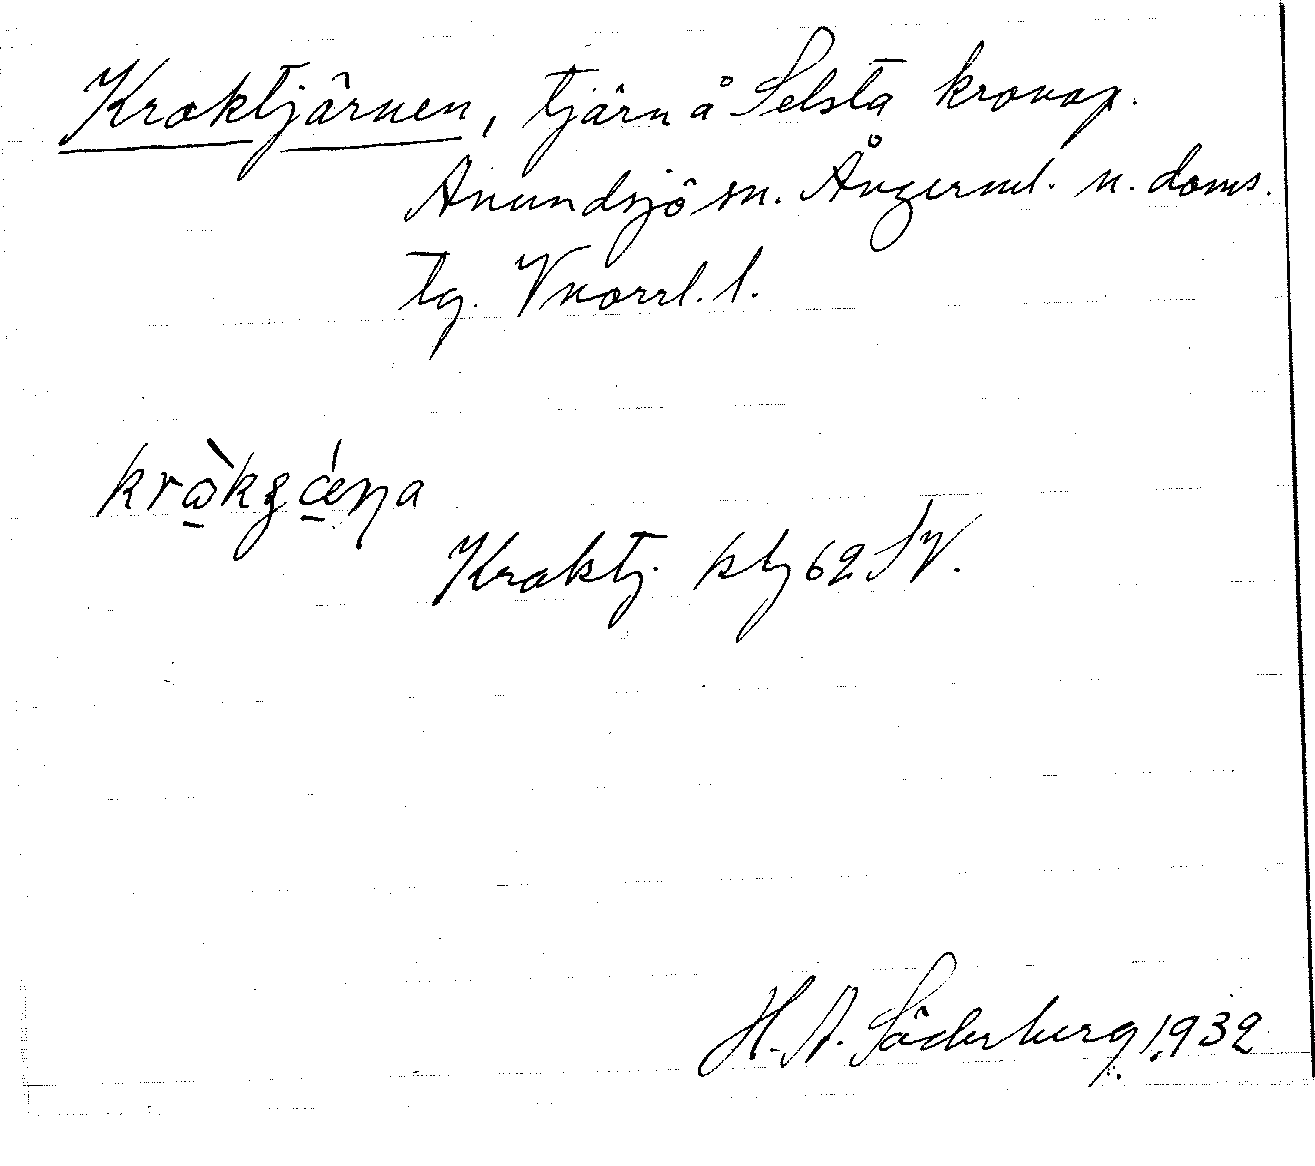 Kroktjärnen, tjärn å Selsta kronop.
Anundsjö sn. Ångerml. n. doms.
tg. Vnorrl. l.
Kroktj. kbj 62 SV.
H. A. Söderberg 1932